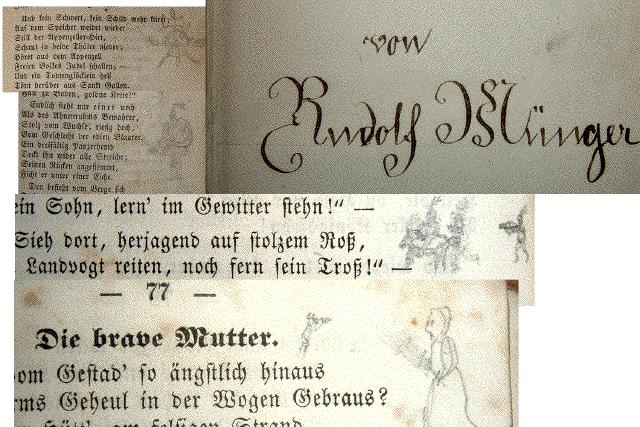 Und kein Schwert, kein Schild mehr klirrt;
Auf dem Speicher weidet wieder
Still der Appenzeller-Hirt,
Schaut in beide Thäler nieder;
Höret aus dem Appenzell
Freien Volkes Jubel schallen,
Und ein Todtenglöcklein hell
Tönt herüber aus Sankt Gallen.
Endlich steht nur einer noch
Als des Ahnenruhms Bewahrer,
Stolz vom Wuchse, riesig hoch,
Vom Geschlecht der edlen Blaarer.
Ein dreifältig Panzerhemd
Deckt ihn wider alle Streiche,
Seinen Rücken angestemmt,
Ficht er unter einer Eiche.
Den besteht vom Berge sich
von
Rudolf Münger
ein Sohn, lern' im Gewitter stehn!“ —
Sieh dort, herjagend auf stolzem Roß,
Landvogt reiten, noch fern sein Troß!“ —
— 77 —
Die brave Mutter.
vom Gestad' so ängstlich hinaus
rms Geheul in der Wogen Gebraus?
am felsigen Strand